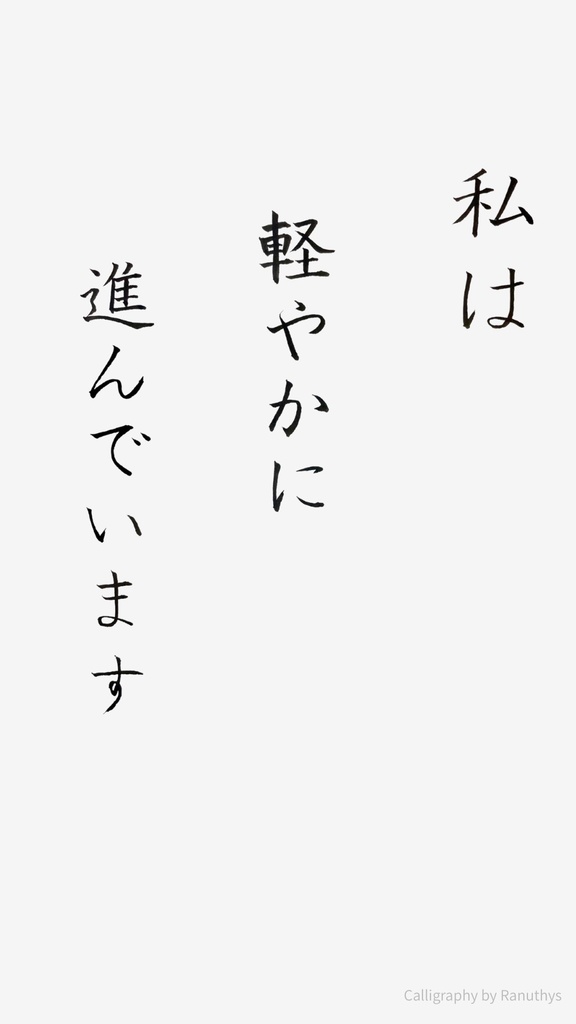 私は
軽やかに
進んでいます
Calligraphy by Ranuthys